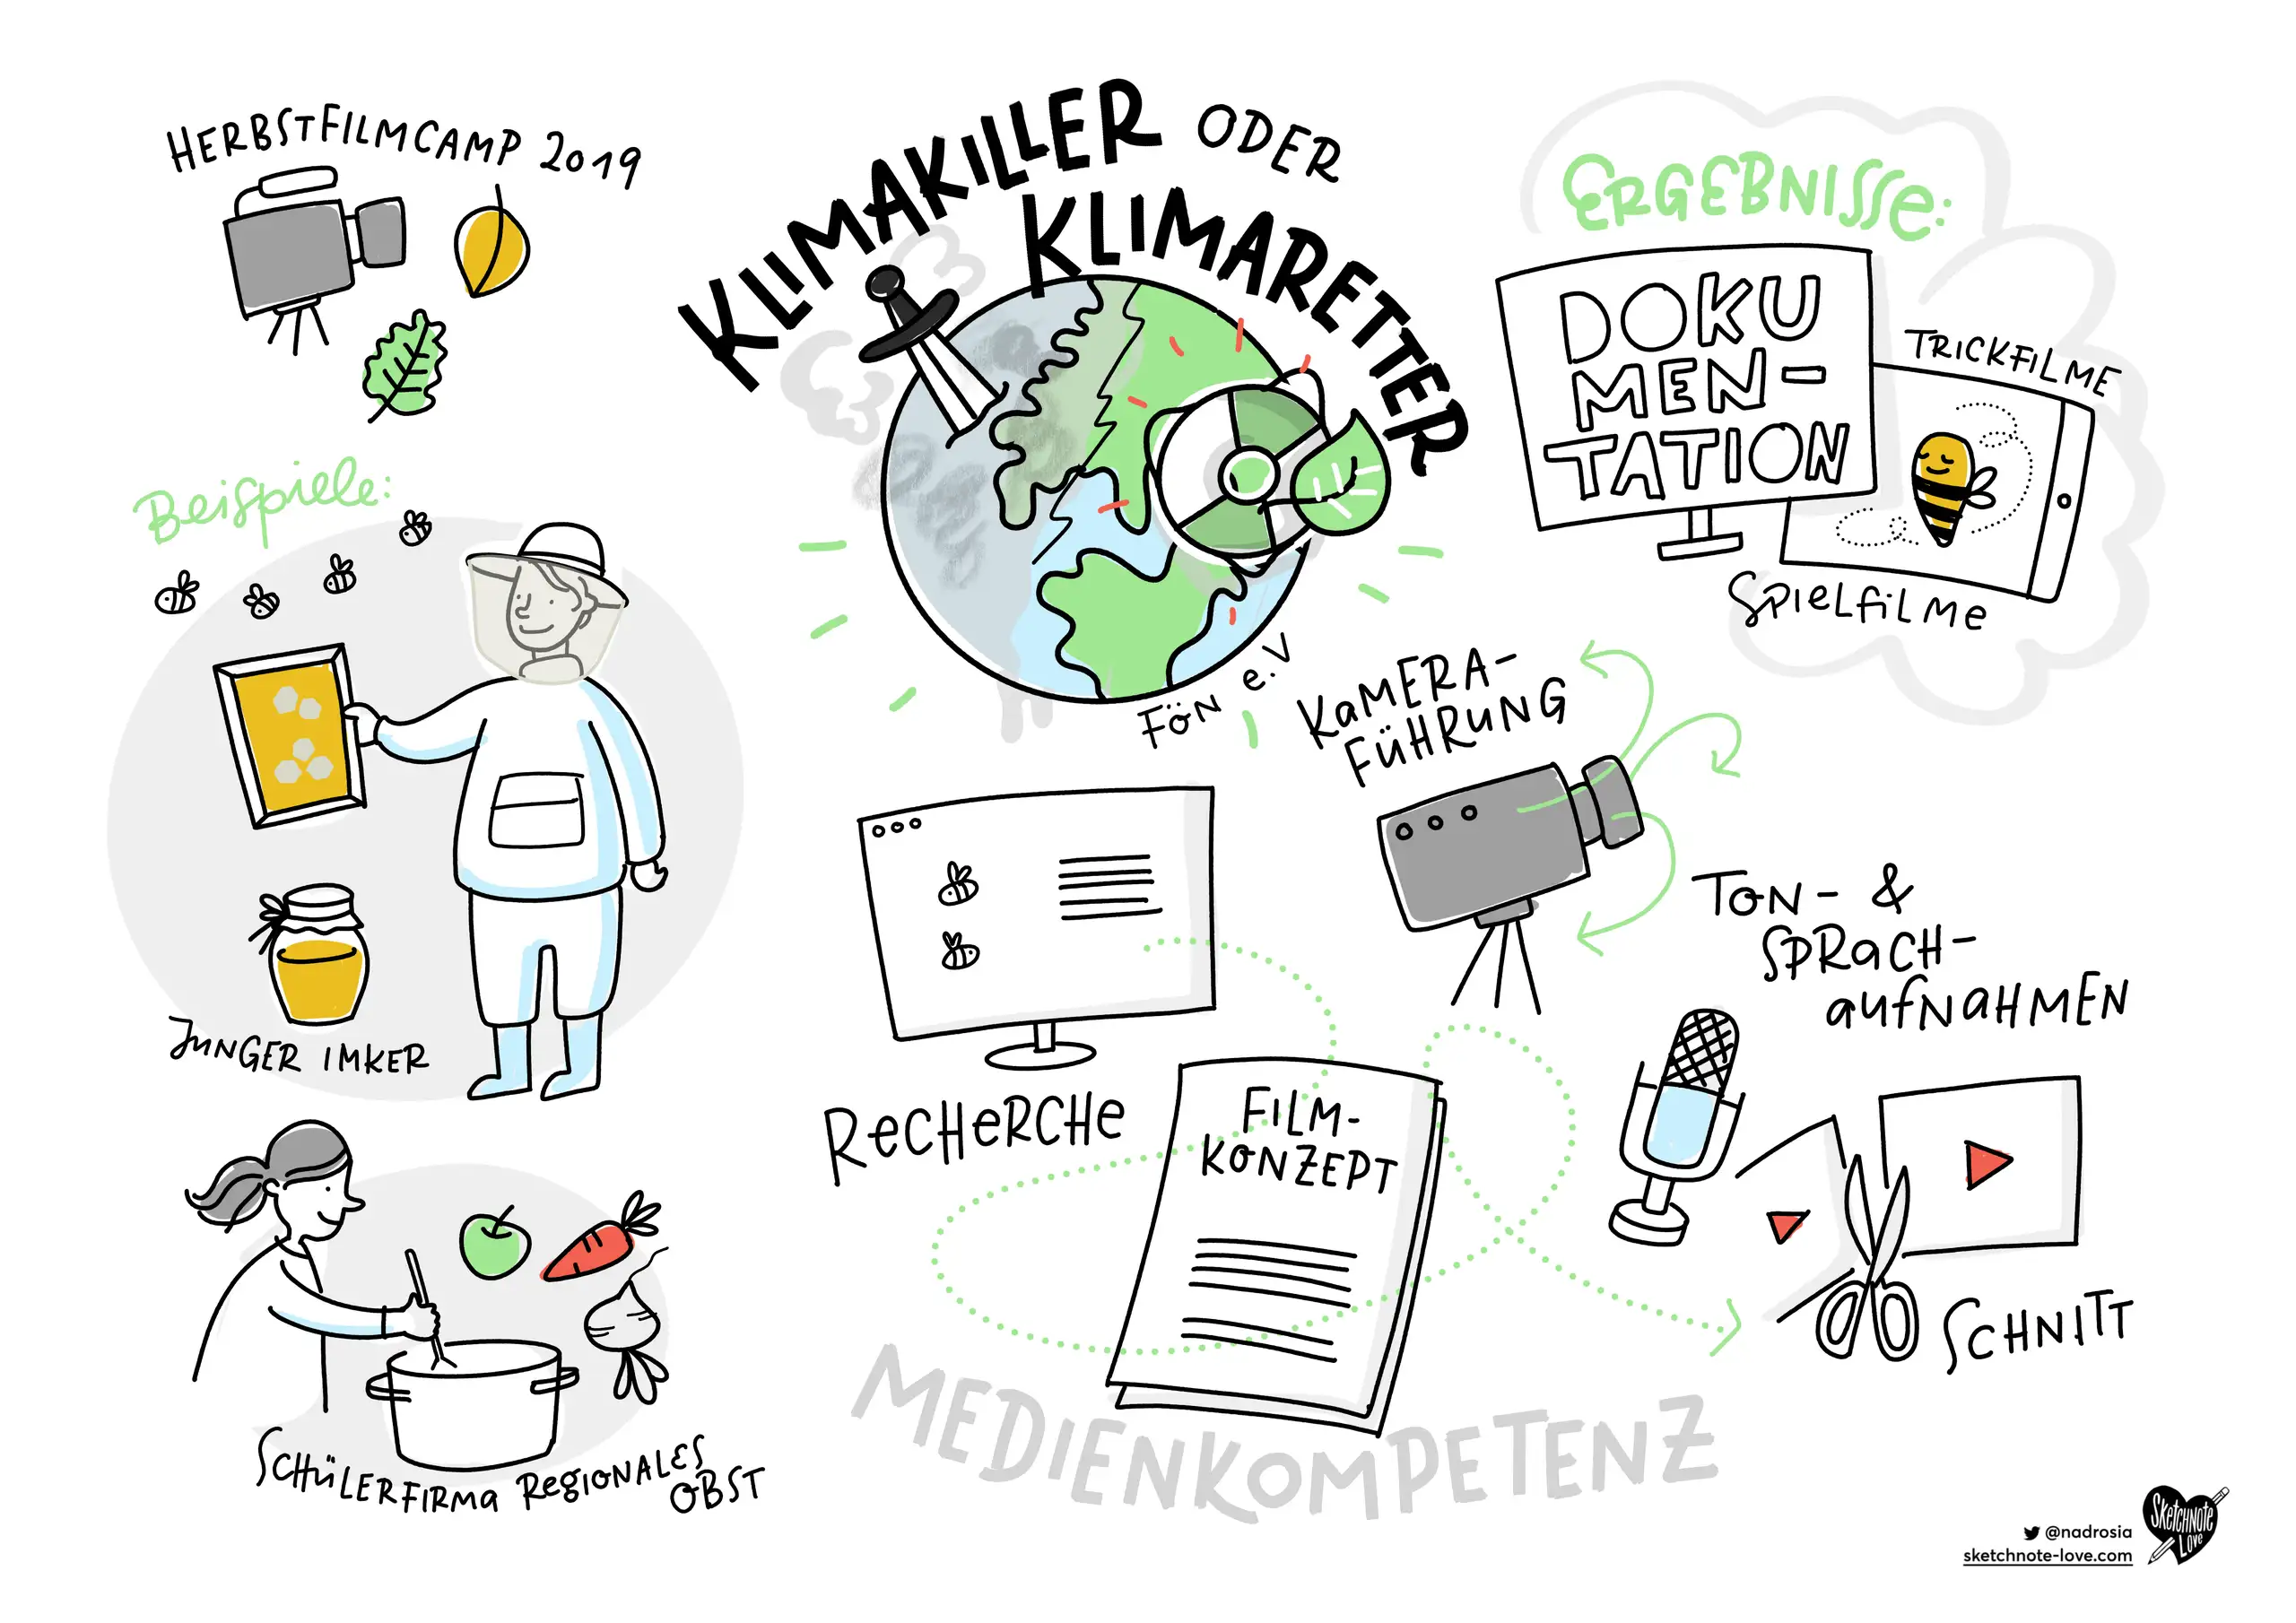 HERBSTFILMCAMP 2019
KLIMAKILLER ODER
KLIMARETTER
FÖN e.V
Beispiele:
JUNGER IMKER
SCHÜLERFIRMA REGIONALES
OBST
ERGEBNISSE:
DOKU
MEN-
TATION
TRICKFILME
SPIELFILME
KAMERA-
FÜHRUNG
TON- &
SPRACH-
AUFNAHMEN
RECHERCHE
FILM-
KONZEPT
SCHNITT
MEDIENKOMPETENZ
@nadrosia
sketchnote-love.com
SKETCHNOTE
LOVE